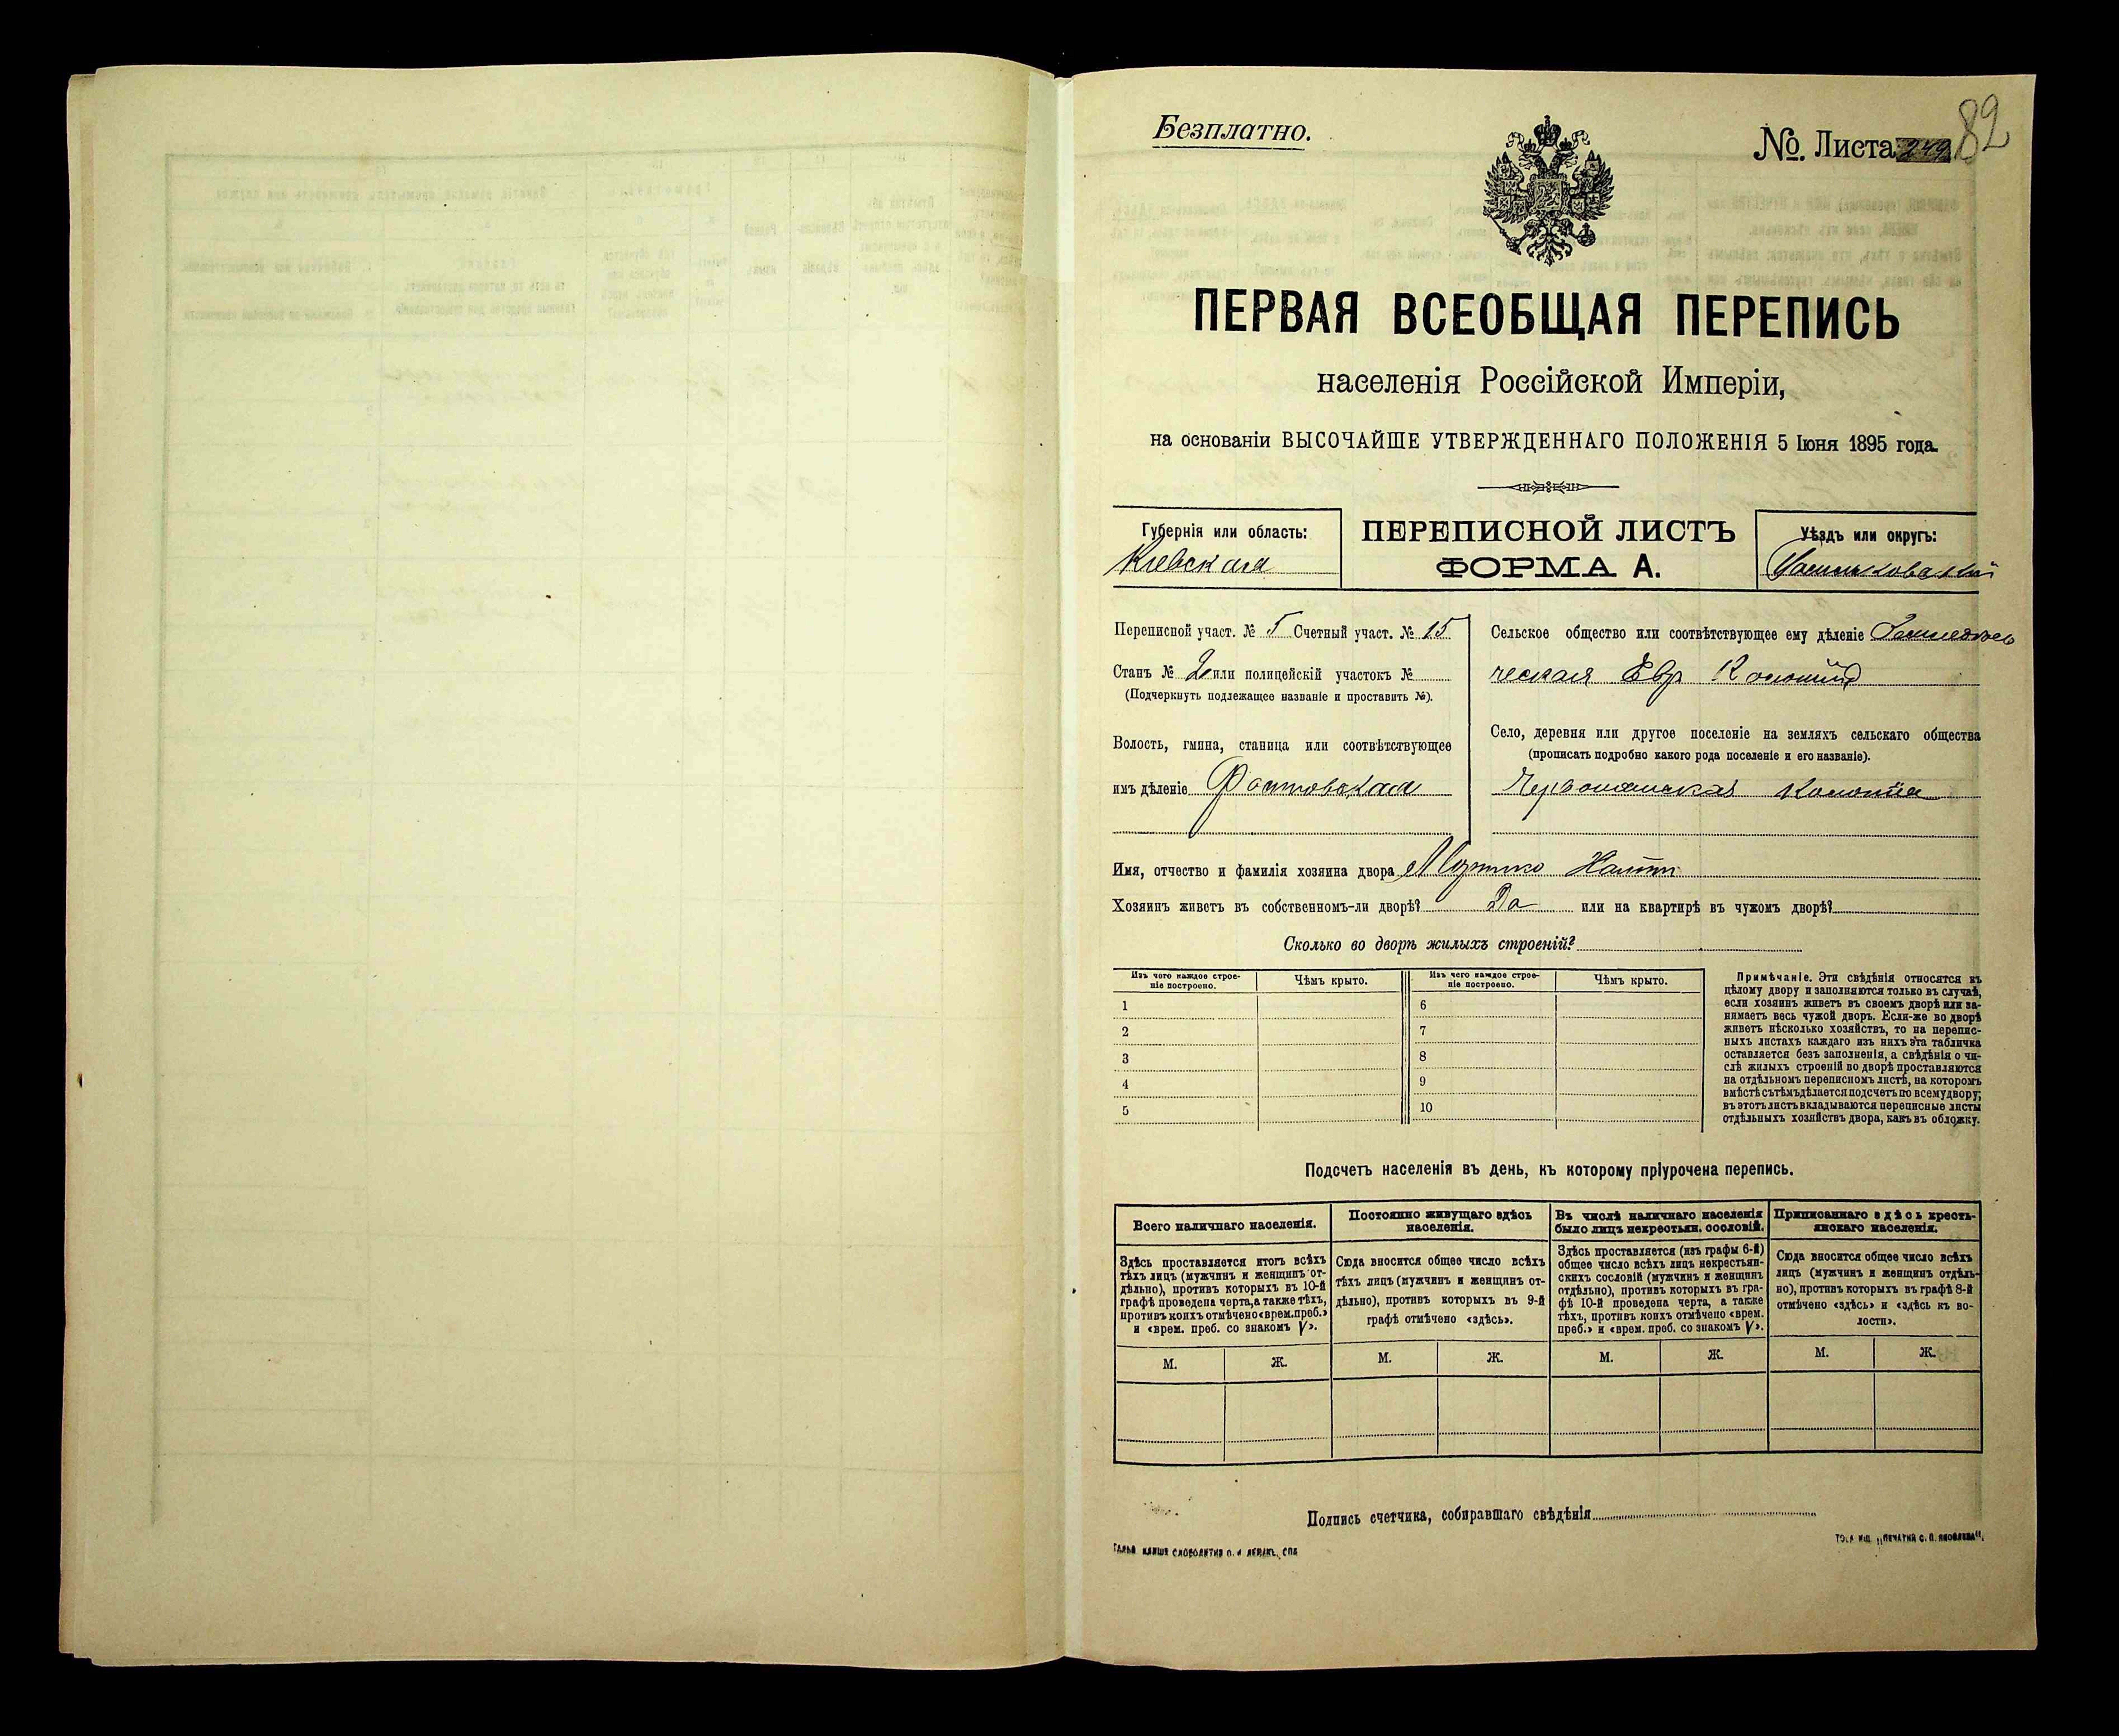 Безплатно.
№. Листа 82
ПЕРВАЯ ВСЕОБЩАЯ ПЕРЕПИСЬ
населенія Россійской Имперіи,
на основаніи ВЫСОЧАЙШЕ УТВЕРЖДЕННАГО ПОЛОЖЕНІЯ 5 Іюня 1895 года.
Губернія или область:
Кіевская
ПЕРЕПИСНОЙ ЛИСТЪ
ФОРМА А.
Уѣздъ или округъ:
Васильковскій
Переписной участ. № 5 Счетный участ. № 15
Станъ № 2 или полицейскій участокъ №
(Подчеркнуть подлежащее названіе и проставить №).
Волость, гмина, станица или соотвѣтствующее
имъ дѣленіе Фастовская
Сельское общество или соотвѣтствующее ему дѣленіе Земледѣль
ческая Евр Колонія
Село, деревня или другое поселеніе на земляхъ сельскаго общества
(прописать подробно какого рода поселеніе и его названіе).
Червонянская Колонія
Имя, отчество и фамилія хозяина двора
Хозяинъ живетъ въ собственномъ-ли дворѣ? Да или на квартирѣ въ чужомъ дворѣ?
Сколько во дворѣ жилыхъ строеній?
Изъ чего каждое строе-
ніе построено.
Чѣмъ крыто.
Изъ чего каждое строе-
ніе построено.
Чѣмъ крыто.
1
2
3
4
5
6
7
8
9
10
Примѣчаніе. Эти свѣдѣнія относятся къ
цѣлому двору и заполняются только въ случаѣ,
если хозяинъ живетъ въ своемъ дворѣ или за-
нимаетъ весь чужой дворъ. Если-же во дворѣ
живетъ нѣсколько хозяйствъ, то на перепис-
ныхъ листахъ каждаго изъ нихъ эта табличка
оставляется безъ заполненія, а свѣдѣнія о чи-
слѣ жилыхъ строеній во дворѣ проставляются
на отдѣльномъ переписномъ листѣ, на которомъ
вмѣстѣ съ тѣмъ дѣлается подсчетъ по всему двору;
въ этотъ листъ вкладываются переписные листы
отдѣльныхъ хозяйствъ двора, какъ въ обложку.
Подсчетъ населенія въ день, къ которому пріурочена перепись.
Всего наличнаго населенія.
Здѣсь проставляется итогъ всѣхъ
тѣхъ лицъ (мужчинъ и женщинъ от-
дѣльно), противъ которыхъ въ 10-й
графѣ проведена черта, а также тѣхъ,
противъ коихъ отмѣчено «врем. преб.»
и «врем. преб. со знакомъ V».
М. Ж.
Постоянно живущаго здѣсь
населенія.
Сюда вносится общее число всѣхъ
тѣхъ лицъ (мужчинъ и женщинъ от-
дѣльно), противъ которыхъ въ 9-й
графѣ отмѣчено «здѣсь».
М. Ж.
Въ числѣ наличнаго населенія
было лицъ некрестьян. сословій.
Здѣсь проставляется (изъ графы 6-й)
общее число всѣхъ лицъ некрестьян-
скихъ сословій (мужчинъ и женщинъ
отдѣльно), противъ которыхъ въ гра-
фѣ 10-й проведена черта, а также
тѣхъ, противъ коихъ отмѣчено «врем.
преб.» и «врем. преб. со знакомъ V».
М. Ж.
Приписаннаго здѣсь кресть-
янскаго населенія.
Сюда вносится общее число всѣхъ
лицъ (мужчинъ и женщинъ отдѣль-
но), противъ которыхъ въ графѣ 8-й
отмѣчено «здѣсь» и «здѣсь къ во-
лости».
М. Ж.
Подпись счетчика, собиравшаго свѣдѣнія